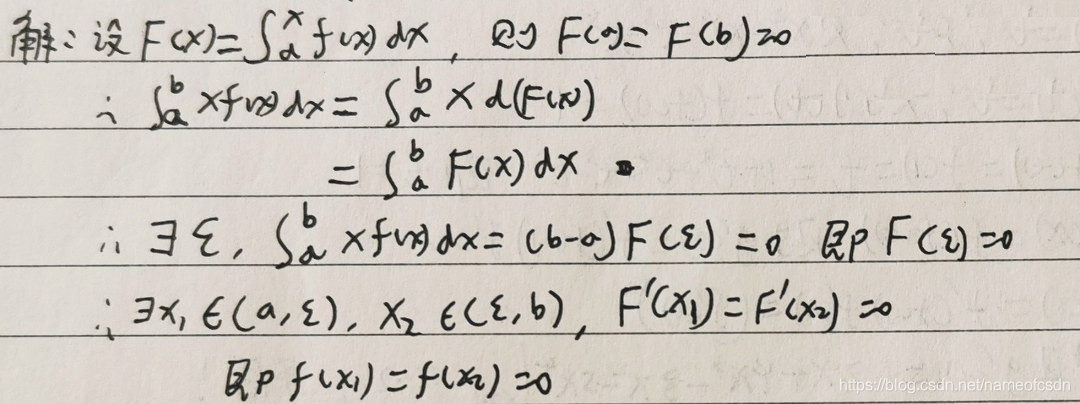 解：设 F(x)=∫ₐˣ f(x) dx，则 F(a)= F(b)=0
∴ ∫ₐᵇ xf(x) dx = ∫ₐᵇ x d(F(x))
= ∫ₐᵇ F(x) dx
∴ ∃ ε, ∫ₐᵇ xf(x) dx = (b-a) F(ε) =0 即 F(ε)=0
∴ ∃x₁ ∈(a,ε), x₂ ∈(ε,b), F'(x₁)=F'(x₂)=0
即 f(x₁)=f(x₂)=0
https://blog.csdn.net/nameofcsdn